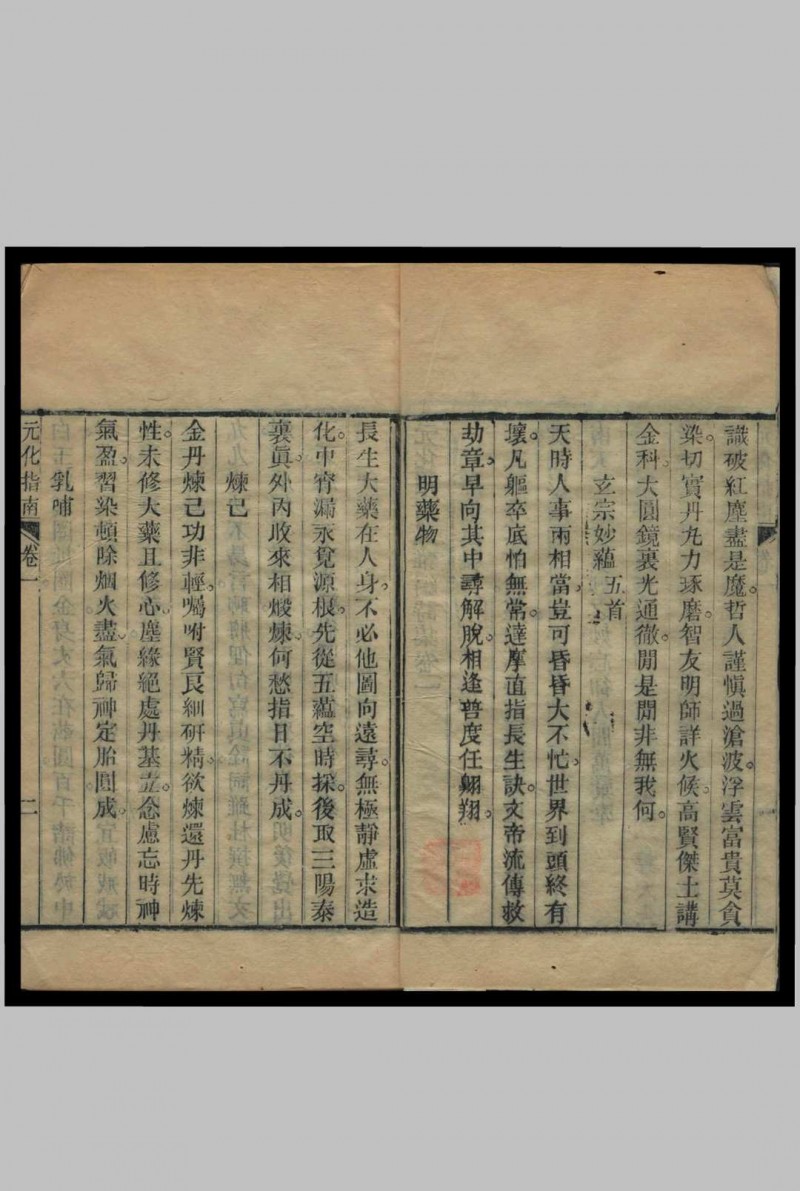 識破紅塵盡是魔。哲人謹愼過滄波。浮雲富貴莫貪
染。切實丹丸力琢磨。智友明師詳火候。高賢傑士講
金科。大圓鏡裏光通徹。閒是閒非無我何。
玄宗妙蘊五首
天時人事兩相當。豈可昏昏大不忙。世界到頭終有
壞。凡軀卒底怕無常。達摩直指長生訣。文帝流傳救
劫章。早向其中尋解脫。相逢普度任翺翔。
明藥物
長生大藥在人身。不必他圖向遠尋。無極靜虛求造
化。中宵漏永覓源根。先從五蘊空時採。後取三陽泰
裏眞。外內收來相煅煉。何愁指日不丹成。
煉己
金丹煉己功非輕。囑咐賢良細研精。欲煉還丹先煉
性。未修大藥且修心。塵緣絕處丹基立。念慮忘時神
氣盈。習染頓除烟火盡。氣歸神定胎圓成。
乳哺
元化指南 卷一 二